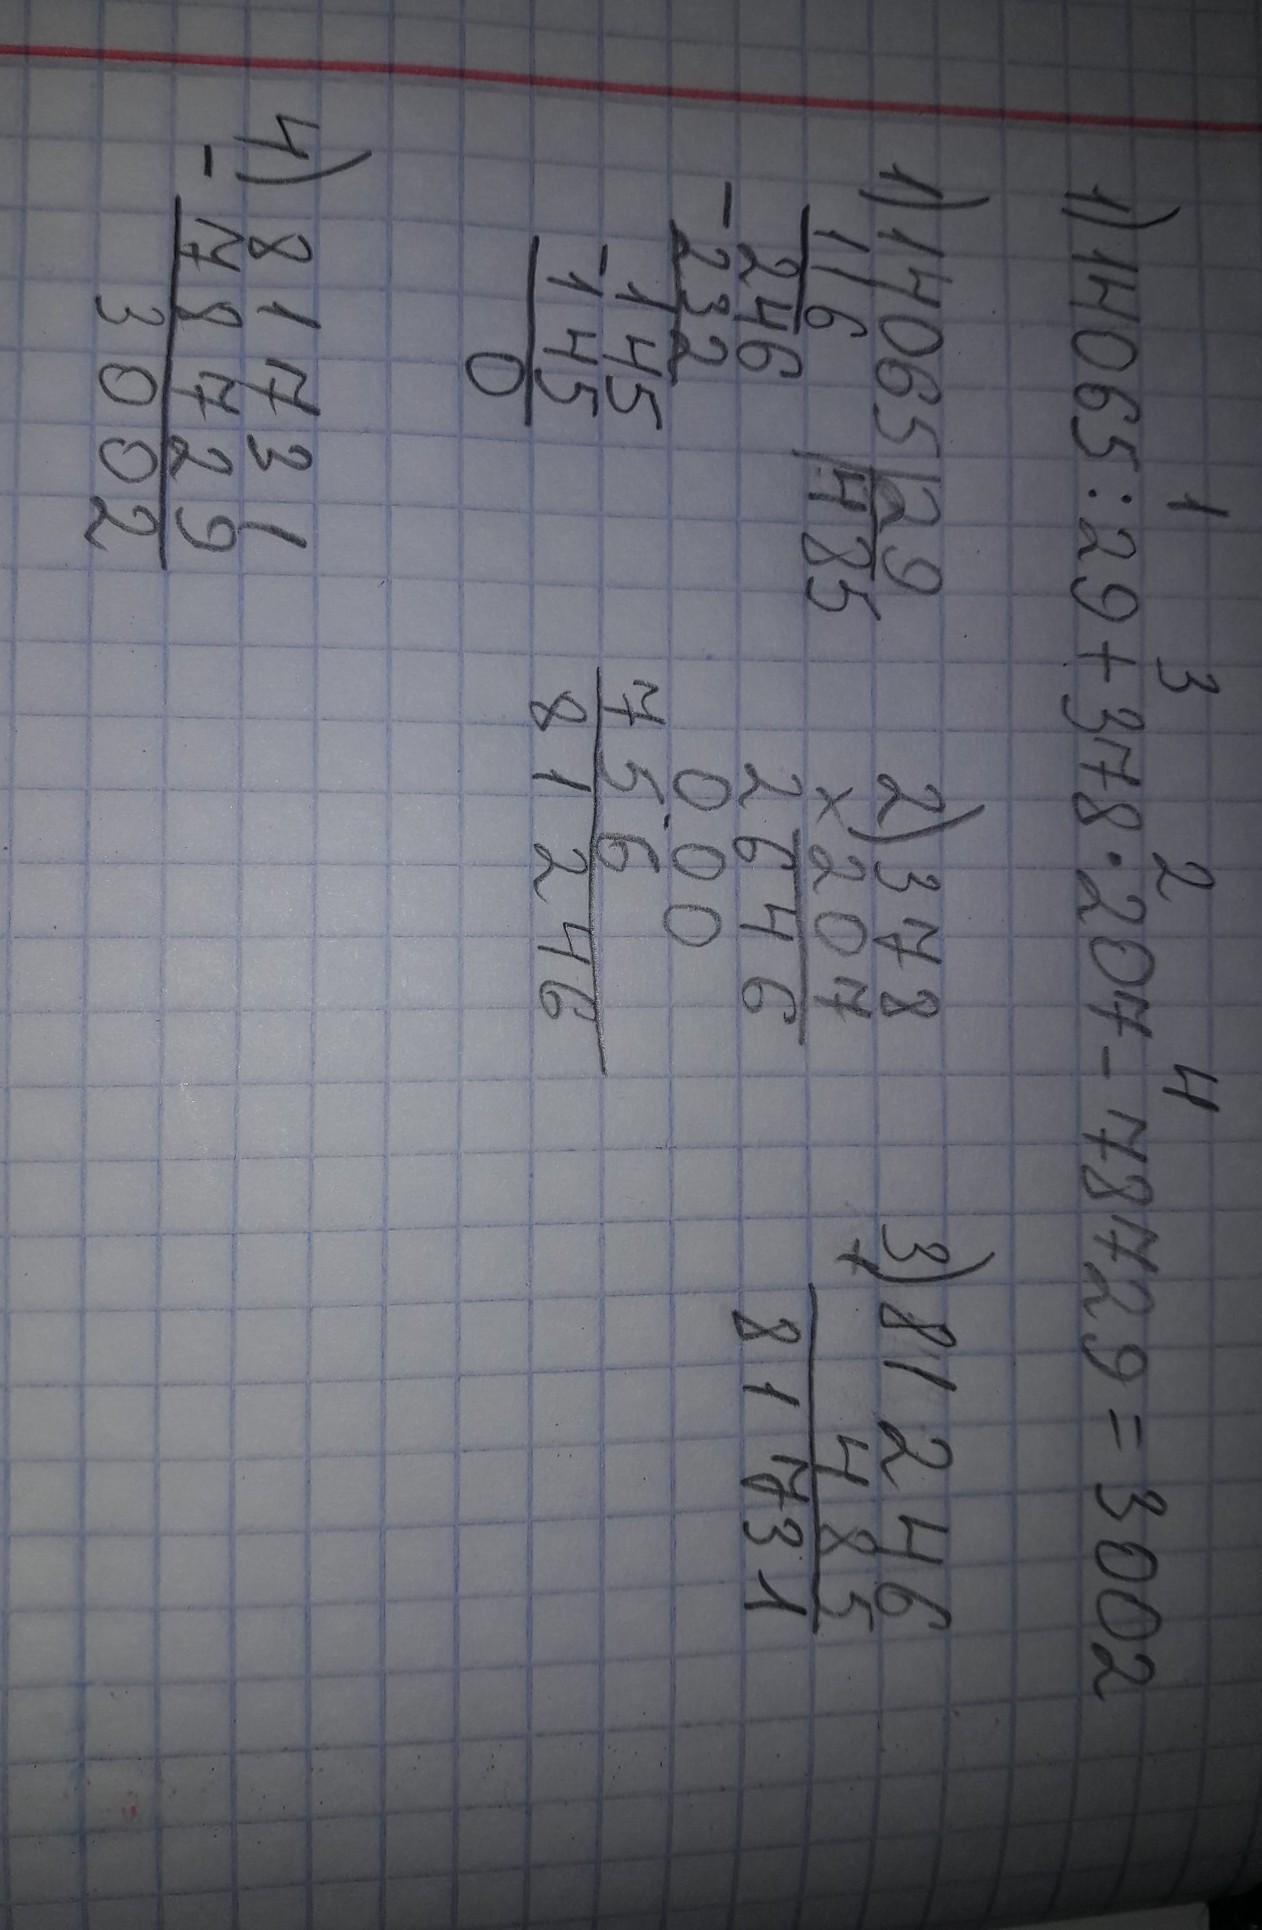 1 3 2 4
1) 14065 : 29 + 378 · 207 - 78729 = 3002
1) 14065 | 29
116 485
246
- 232
145
- 145
0
2) 378
× 207
2646
000
756
81246
3) 81246
+ 485
81731
4) 81731
- 78729
3002